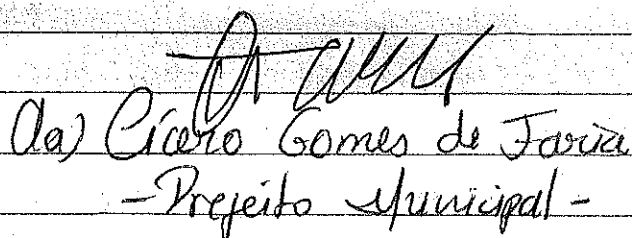 (a) Cícero Gomes de Faria
- Prefeito Municipal -